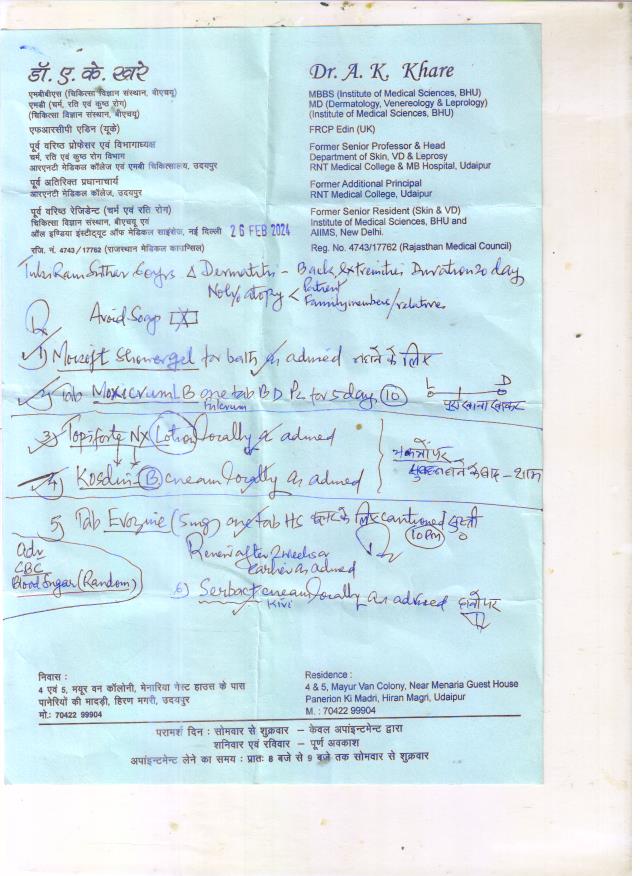 डॉ. ए. के. खरे
एमबीबीएस (चिकित्सा विज्ञान संस्थान, बीएचयू)
एमडी (चर्म, रति एवं कुष्ठ रोग)
(चिकित्सा विज्ञान संस्थान, बीएचयू)
एफआरसीपी एडिन (यूके)
पूर्व वरिष्ठ प्रोफेसर एवं विभागाध्यक्ष
चर्म, रति एवं कुष्ठ रोग विभाग
आरएनटी मेडिकल कॉलेज एवं एमबी चिकित्सालय, उदयपुर
पूर्व अतिरिक्त प्रधानाचार्य
आरएनटी मेडिकल कॉलेज, उदयपुर
पूर्व वरिष्ठ रेजिडेन्ट (चर्म एवं रति रोग)
चिकित्सा विज्ञान संस्थान, बीएचयू एवं
ऑल इण्डिया इंस्टीट्यूट ऑफ मेडिकल साइंसेज, नई दिल्ली
रजि. नं. 4743/17762 (राजस्थान मेडिकल काउन्सिल)
Dr. A. K. Khare
MBBS (Institute of Medical Sciences, BHU)
MD (Dermatology, Venereology & Leprology)
(Institute of Medical Sciences, BHU)
FRCP Edin (UK)
Former Senior Professor & Head
Department of Skin, VD & Leprosy
RNT Medical College & MB Hospital, Udaipur
Former Additional Principal
RNT Medical College, Udaipur
Former Senior Resident (Skin & VD)
Institute of Medical Sciences, BHU and
AIIMS, New Delhi.
Reg. No. 4743/17762 (Rajasthan Medical Council)
26 FEB 2024
60yrs Δ Dermatitis - Back, extremities Duration 20 day
No h/o atopy < Patient
Family members/relatives
Rx Avoid Soap
1) Moisoft Shower gel for bath as advised नहाने के लिए
2) Tab Moxicrum LB one tab BD PC for 5 days (10)
L D
3) Topiforte NX Lotion locally as advised
4) Kosdin-B cream locally as advised
नहाने के बाद - शाम
5) Tab Evozine (5mg) one tab HS
10 PM
Review after 2 weeks or
earlier as advised
Adv
CBC
Blood Sugar (Random)
6) Serbact cream locally as advised
निवास :
4 एवं 5, मयूर वन कॉलोनी, मेनारिया गेस्ट हाउस के पास
पानेरियों की मादड़ी, हिरण मगरी, उदयपुर
मो.: 70422 99904
Residence :
4 & 5, Mayur Van Colony, Near Menaria Guest House
Panerion Ki Madri, Hiran Magri, Udaipur
M. : 70422 99904
परामर्श दिन : सोमवार से शुक्रवार – केवल अपांइन्टमेन्ट द्वारा
शनिवार एवं रविवार – पूर्ण अवकाश
अपांइन्टमेन्ट लेने का समय : प्रातः 8 बजे से 9 बजे तक सोमवार से शुक्रवार